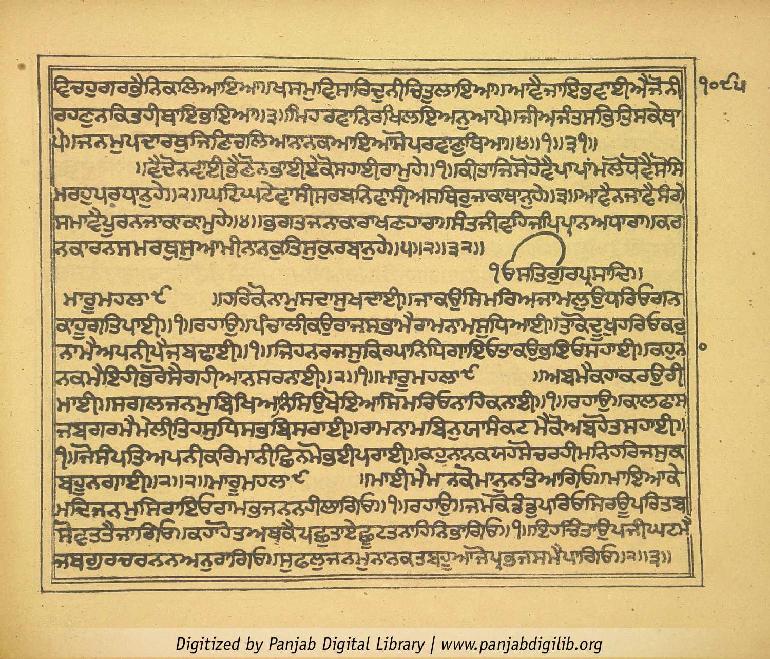 ਵਿਚਹੁਗਰਭੈਨਿਕਲਿਆਇਆ॥ਖਸਮੁਵਿਸਾਰਿਦੁਨੀਚਿਤੁਲਾਇਆ॥ਆਵੈਜਾਇਭਵਾਈਐਜੋਨੀ ੧੦੯੫
ਰਹਣੁਨਕਿਤਹੀਥਾਇਭਇਆ॥੩॥ਮਿਹਰਵਾਨਿਰਖਿਲਇਅਨੁਆਪੇ॥ਜੀਅਜੰਤਸਭਿਤਿਸਕੇਥਾ
ਪੇ॥ਜਨਮੁਪਦਾਰਥੁਜਿਣਿਚਲਿਆਨਾਨਕਆਇਆਸੋਪਰਵਾਣੁਥਿਆ॥੪॥੧॥੩੧॥
॥ਵੈਦੋਨਵਾਈਭੈਣੋਨਭਾਈਏਕੋਸਹਾਈਰਾਮੁਹੇ॥੧॥ਕੀਤਾਜਿਸੋਹੋਵੈਪਾਪਾਂਮਲੋਧੋਵੈਸੋਸਿ
ਮਰਹੁਪਰਧਾਨੁਹੇ॥੨॥ਘਟਿਘਟੇਵਾਸੀਸਰਬਨਿਵਾਸੀਅਸਥਿਰੁਜਾਕਾਥਾਨੁਹੇ॥੩॥ਆਵੈਨਜਾਵੈਸੰਗੇ
ਸਮਾਵੈਪੂਰਨਜਾਕਾਕਾਮੁਹੇ॥੪॥ਭਗਤਜਨਾਕਾਰਾਖਣਹਾਰਾ॥ਸੰਤਜੀਵਹਿਜਪਿਪ੍ਰਾਨਅਧਾਰਾ॥ਕਰ
ਨਕਾਰਨਸਮਰਥੁਸੁਆਮੀਨਾਨਕੁਤਿਸੁਕੁਰਬਾਨੁਹੇ॥੫॥੨॥੩੨॥
ੴਸਤਿਗੁਰਪ੍ਰਸਾਦਿ॥
ਮਾਰੂਮਹਲਾ੯ ॥ਹਰਿਕੋਨਾਮੁਸਦਾਸੁਖਦਾਈ॥ਜਾਕਉਸਿਮਰਿਅਜਾਮਲੁਉਧਰਿਓਗਨ
ਕਾਹੂਗਤਿਪਾਈ॥੧॥ਰਹਾਉ॥ਪੰਚਾਲੀਕਉਰਾਜਸਭਾਮੈਰਾਮਨਾਮਸੁਧਿਆਈ॥ਤਾਕੋਦੂਖੁਹਰਿਓਕਰੁ
ਨਾਮੈਅਪਨੀਪੈਜਬਢਾਈ॥੧॥ਜਿਹਨਰਜਸੁਕਿਰਪਾਨਿਧਿਗਾਇਓਤਾਕਉਭਇਓਸਹਾਈ॥ਕਹੁਨਾ
ਨਕਮੈਇਹੀਭਰੋਸੈਗਹੀਆਨਸਰਨਾਈ॥੨॥੧॥ਮਾਰੂਮਹਲਾ੯ ॥ਅਬਮੈਕਹਾਕਰਉਰੀ
ਮਾਈ॥ਸਗਲਜਨਮੁਬਿਖਿਅਨਸਿਉਖੋਇਆਸਿਮਰਿਓਨਾਹਿਕਨਾਈ॥੧॥ਰਹਾਉ॥ਕਾਲਫਾਸ
ਜਬਗਰਮੈਮੇਲੀਤਿਹਸੁਧਿਸਭਬਿਸਰਾਈ॥ਰਾਮਨਾਮਬਿਨੁਯਾਸੰਕਟਮੈਕੋਅਬਹੋਤਸਹਾਈ॥
੧॥ਜੋਸੰਪਤਿਅਪਨੀਕਰਿਮਾਨੀਛਿਨਮੋਭਈਪਰਾਈ॥ਕਹੁਨਾਨਕਯਹਸੋਚਰਹੀਮਨਿਹਰਿਜਸੁਕ
ਬਹੂਨਗਾਈ॥੨॥੨॥ਮਾਰੂਮਹਲਾ੯ ॥ਮਾਈਮੈਮਨਕੋਮਾਨੁਨਤਿਆਗਿਓ॥ਮਾਇਆਕੇ
ਮਦਿਜਨਮੁਸਿਰਾਇਓਰਾਮਭਜਨਨਹੀਲਾਗਿਓ॥੧॥ਰਹਾਉ॥ਜਮਕੋਡੰਡੁਪਰਿਓਸਿਰਊਪਰਿਤਬ
ਸੋਵਤਤੈਜਾਗਿਓ॥ਕਹਾਹੋਤਅਬਕੈਪਛੁਤਾਏਛੂਟਤਨਾਹਿਨਭਾਗਿਓ॥੧॥ਇਹਚਿੰਤਾਉਪਜੀਘਟਮੈ
ਜਬਗੁਰਚਰਨਨਅਨੁਰਾਗਿਓ॥ਸੁਫਲੁਜਨਮੁਨਾਨਕਤਬਹੂਆਜੋਪ੍ਰਭਜਸਮੈਪਾਗਿਓ॥੨॥੩॥
Digitized by Panjab Digital Library | www.panjabdigilib.org